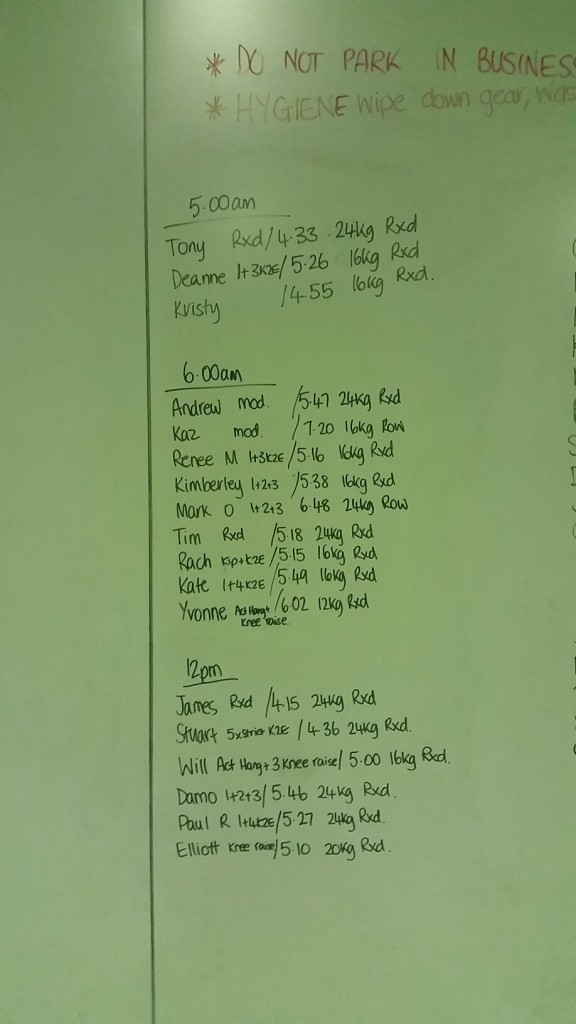 * DO NOT PARK IN BUSINESS
* HYGIENE wipe down gear, was
5.00am
Tony Rxd/4.33 24kg Rxd
Deanne 1+3K2E/5.26 16kg Rxd
Kristy /4.55 16kg Rxd.
6.00am
Andrew mod. /5.47 24kg Rxd
Kaz mod. /7.20 16kg Row
Renee M 1+3K2E/5.16 16kg Rxd
Kimberley 1+2+3 /5.38 16kg Rxd
Mark O 1+2+3 6.48 24kg Row
Tim Rxd /5.18 24kg Rxd
Rach Kip+K2E/5.15 16kg Rxd
Kate 1+4K2E/5.49 16kg Rxd
Yvonne Act Hang+ /6.02 12kg Rxd
Knee raise.
12pm
James Rxd /4.15 24kg Rxd
Stuart 5xstrict K2E /4.36 24kg Rxd.
Will Act Hang+3 Knee raise/5.00 16kg Rxd.
Damo 1+2+3/5.46 24kg Rxd.
Paul R 1+4K2E/5.27 24kg Rxd.
Elliott Knee raise/5.10 20kg Rxd.